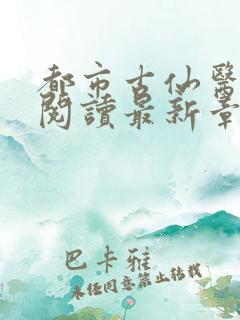 都市古仙醫
閱讀最新章
巴卡雅
未經同意禁止轉載